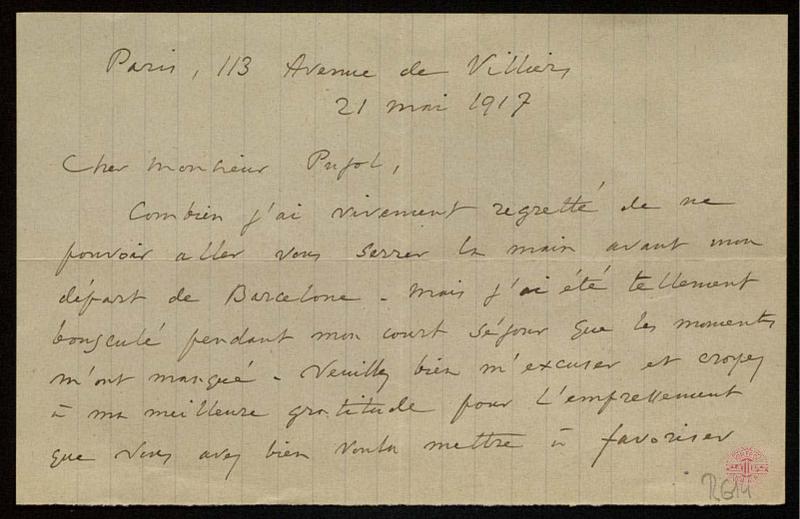 Paris, 113 Avenue de Villiers
21 mai 1917
Cher Monsieur Pujol,
Combien j'ai vivement regretté de ne
pouvoir aller vous serrer la main avant mon
départ de Barcelone - mais j'ai été tellement
bousculé pendant mon court séjour que les moments
m'ont manqué - Veuillez bien m'excuser et croyez
à ma meilleure gratitude pour l'empressement
que vous avez bien voulu mettre à favoriser
R614